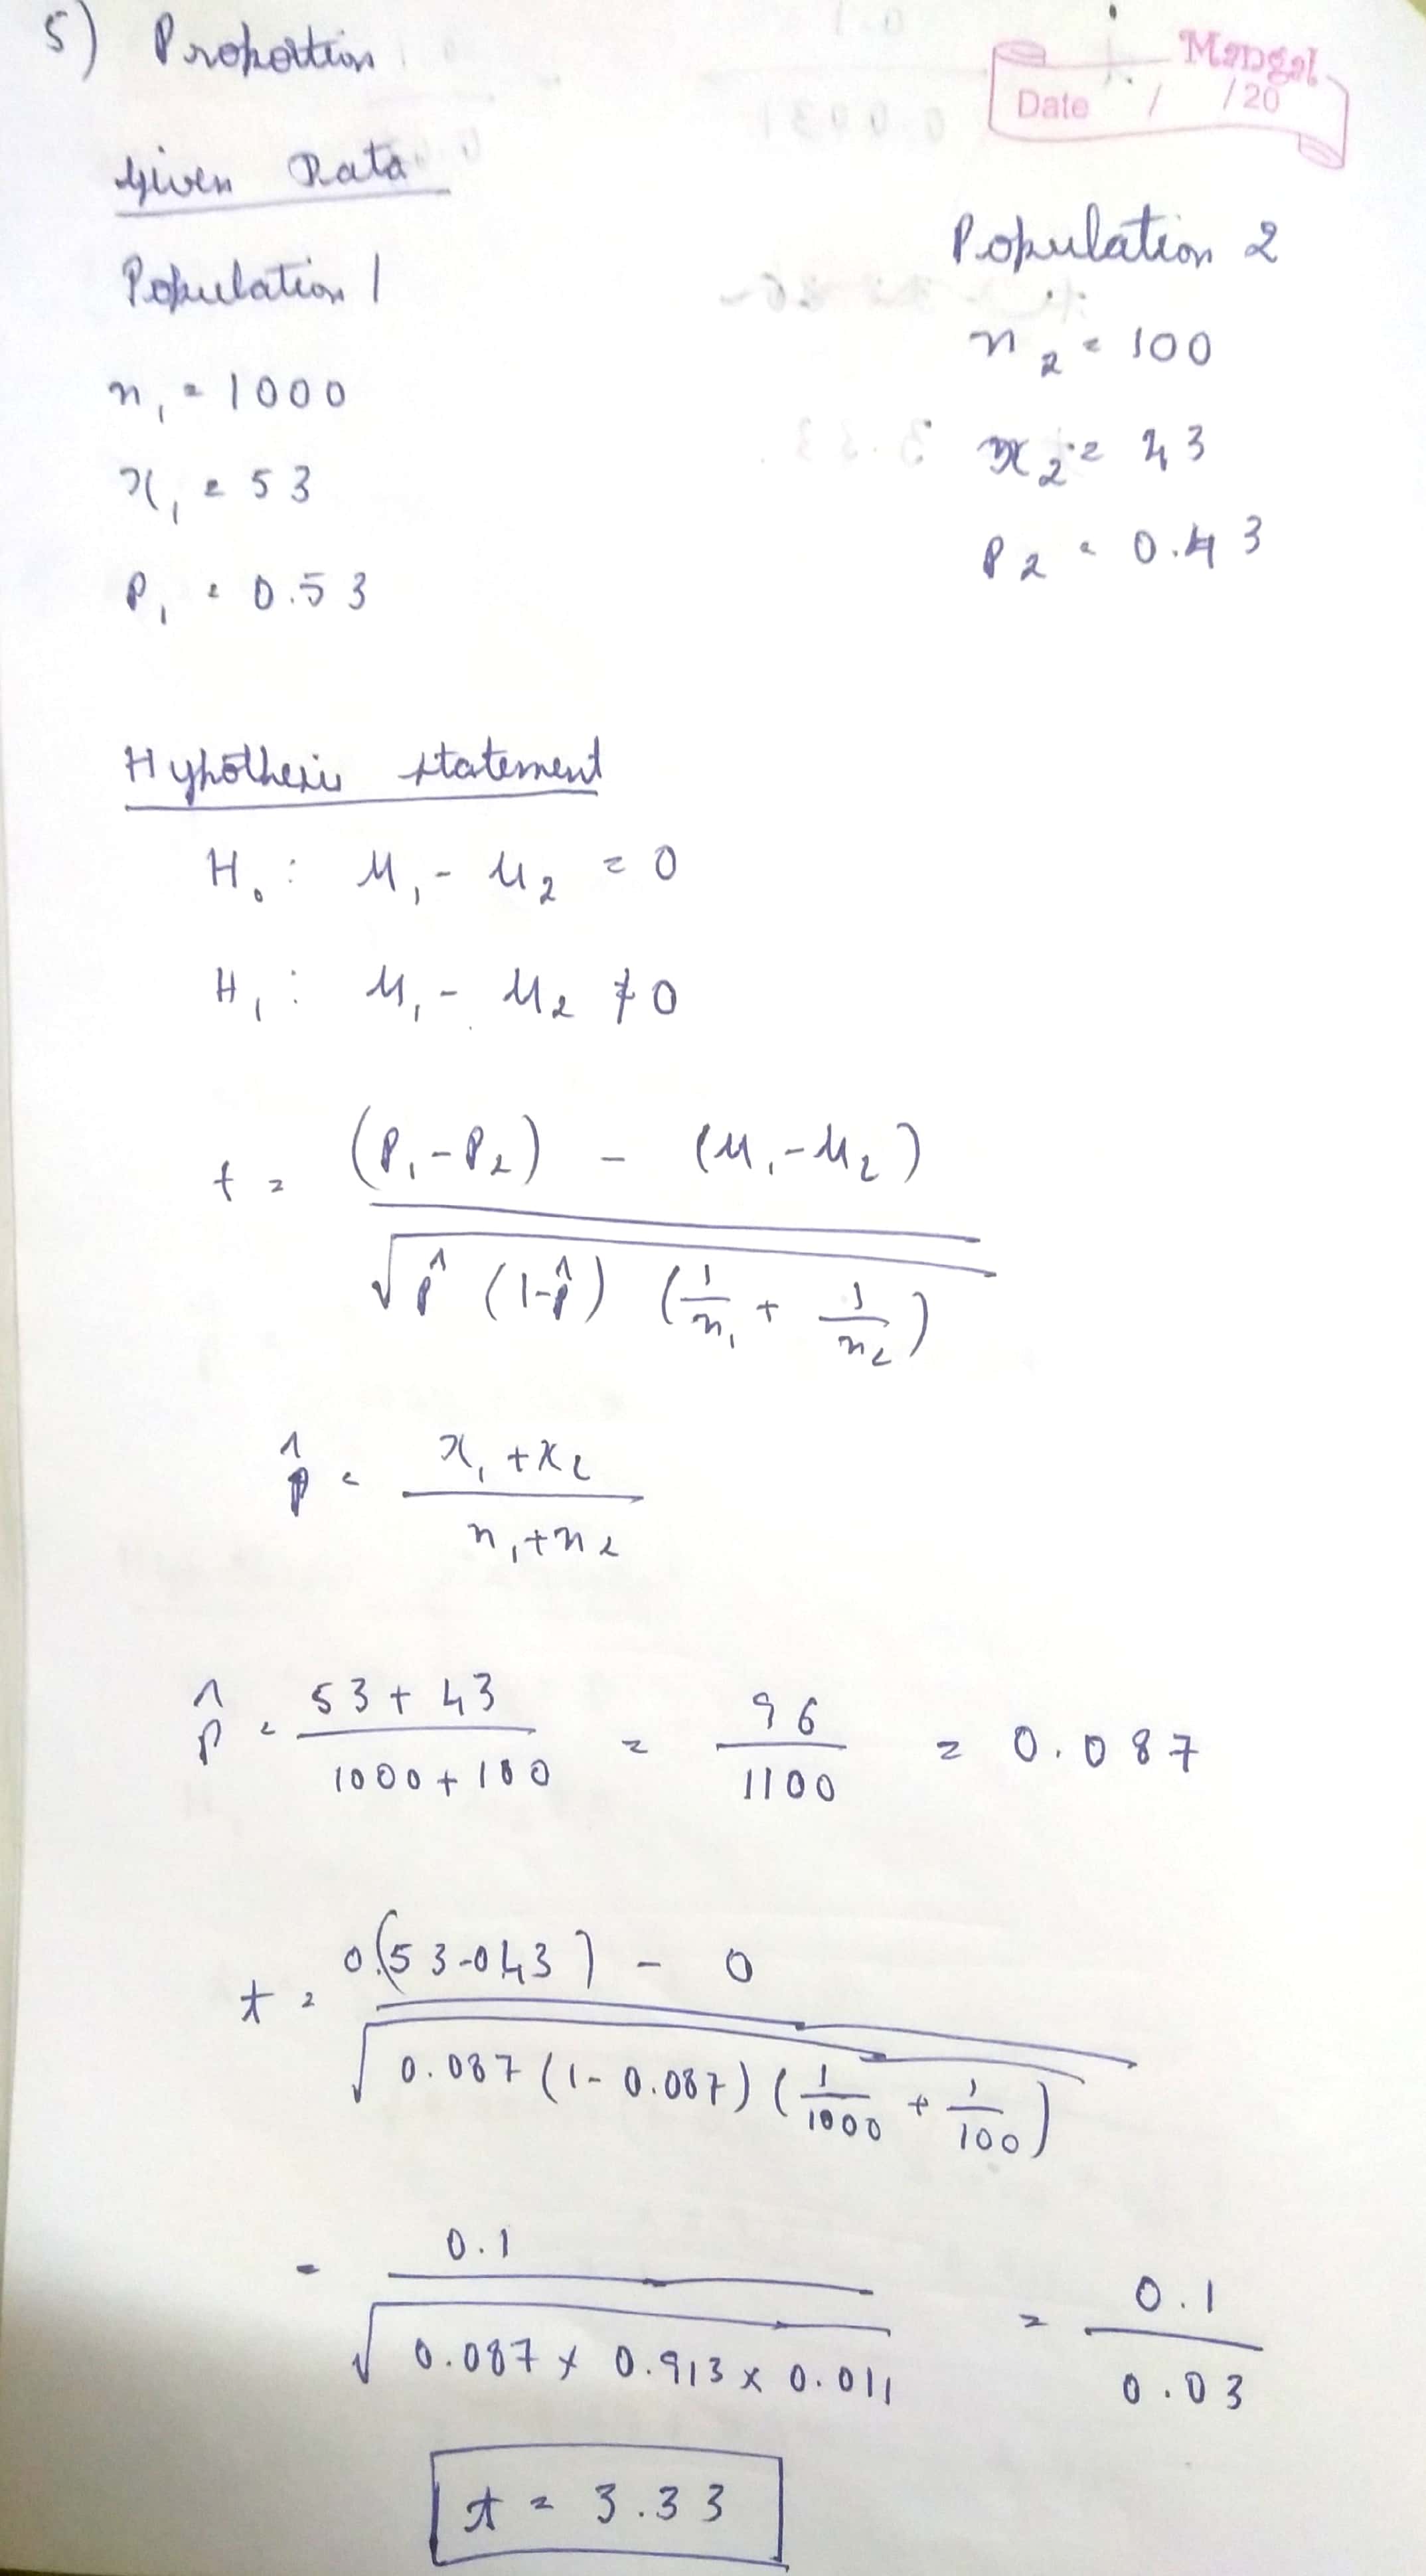 5) Proportion
Mangal
Date / /20
Given Data
Population 1
n₁ = 1000
x₁ = 53
P₁ = 0.53
Population 2
n₂ = 100
x₂ = 43
P₂ = 0.43
Hypothesis statement
H₀ : μ₁ - μ₂ = 0
H₁ : μ₁ - μ₂ ≠ 0
t = (P₁ - P₂) - (μ₁ - μ₂) / √ p̂ (1-p̂) (1/n₁ + 1/n₂)
p̂ = x₁ + x₂ / n₁ + n₂
p̂ = 53 + 43 / 1000 + 100 = 96 / 1100 = 0.087
t = 0.(53-0.43) - 0 / √ 0.087 (1 - 0.087) (1/1000 + 1/100)
= 0.1 / √ 0.087 × 0.913 × 0.011 = 0.1 / 0.03
t = 3.33